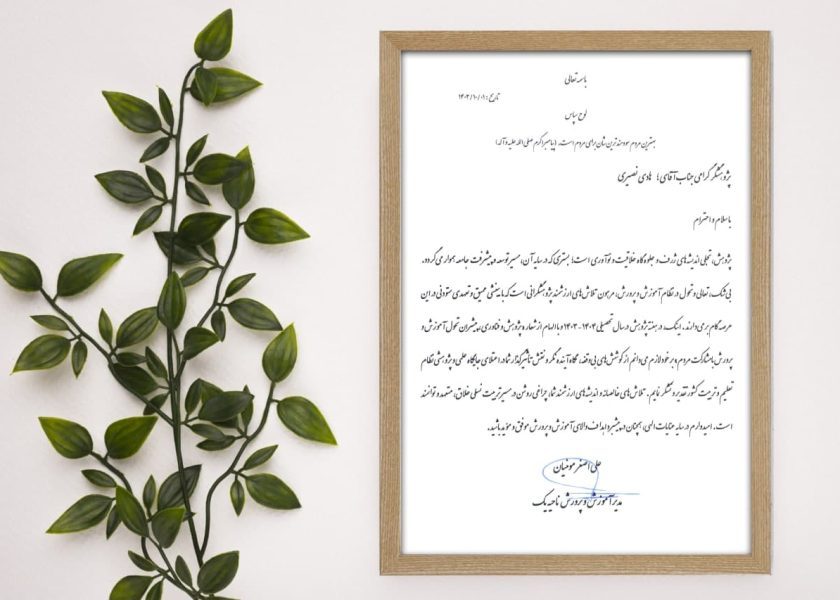 باسمه تعالی
تاریخ: ۱۴۰۳/۱۰/۰۱
لوح سپاس
بهترین مردم سودمندترین شان برای مردم است. (پیامبر اکرم صلی الله علیه و آله)
پژوهشگر گرامی جناب آقای؛ هادی نصیری
با سلام و احترام
پژوهش، تجلی اندیشه‌های ژرف و جلوه‌گاه خلاقیت و نوآوری است؛ بستری که در سایه آن، مسیر توسعه و پیشرفت جامعه هموار می گردد.
بی شک، تعالی و تحول در نظام آموزش و پرورش، مرهون تلاش‌های ارزشمند پژوهشگرانی است که با بینشی عمیق و تعهدی ستودنی در این
عرصه گام برمی دارند. اینک، در هفته پژوهش در سال تحصیلی ۱۴۰۴-۱۴۰۳ و با الهام از شعار «پژوهش و فناوری، پیشران تحول آموزش و
پرورش با مشارکت مردم»، بر خود لازم می دانم از کوشش‌های بی وقفه، نگاه آینده نگر و نقش تأثیرگذار شما در اعتلای جایگاه علمی و پژوهشی نظام
تعلیم و تربیت کشور تقدیر و تشکر نمایم. تلاش‌های خالصانه و اندیشه‌های ارزشمند شما، چراغی روشن در مسیر تربیت نسلی خلاق، متعهد و توانمند
است. امیدوارم در سایه عنایات الهی، همچنان در پیشبرد اهداف والای آموزش و پرورش موفق و مؤید باشید.
علی اصغر مونسیان
مدیر آموزش و پرورش ناحیه یک